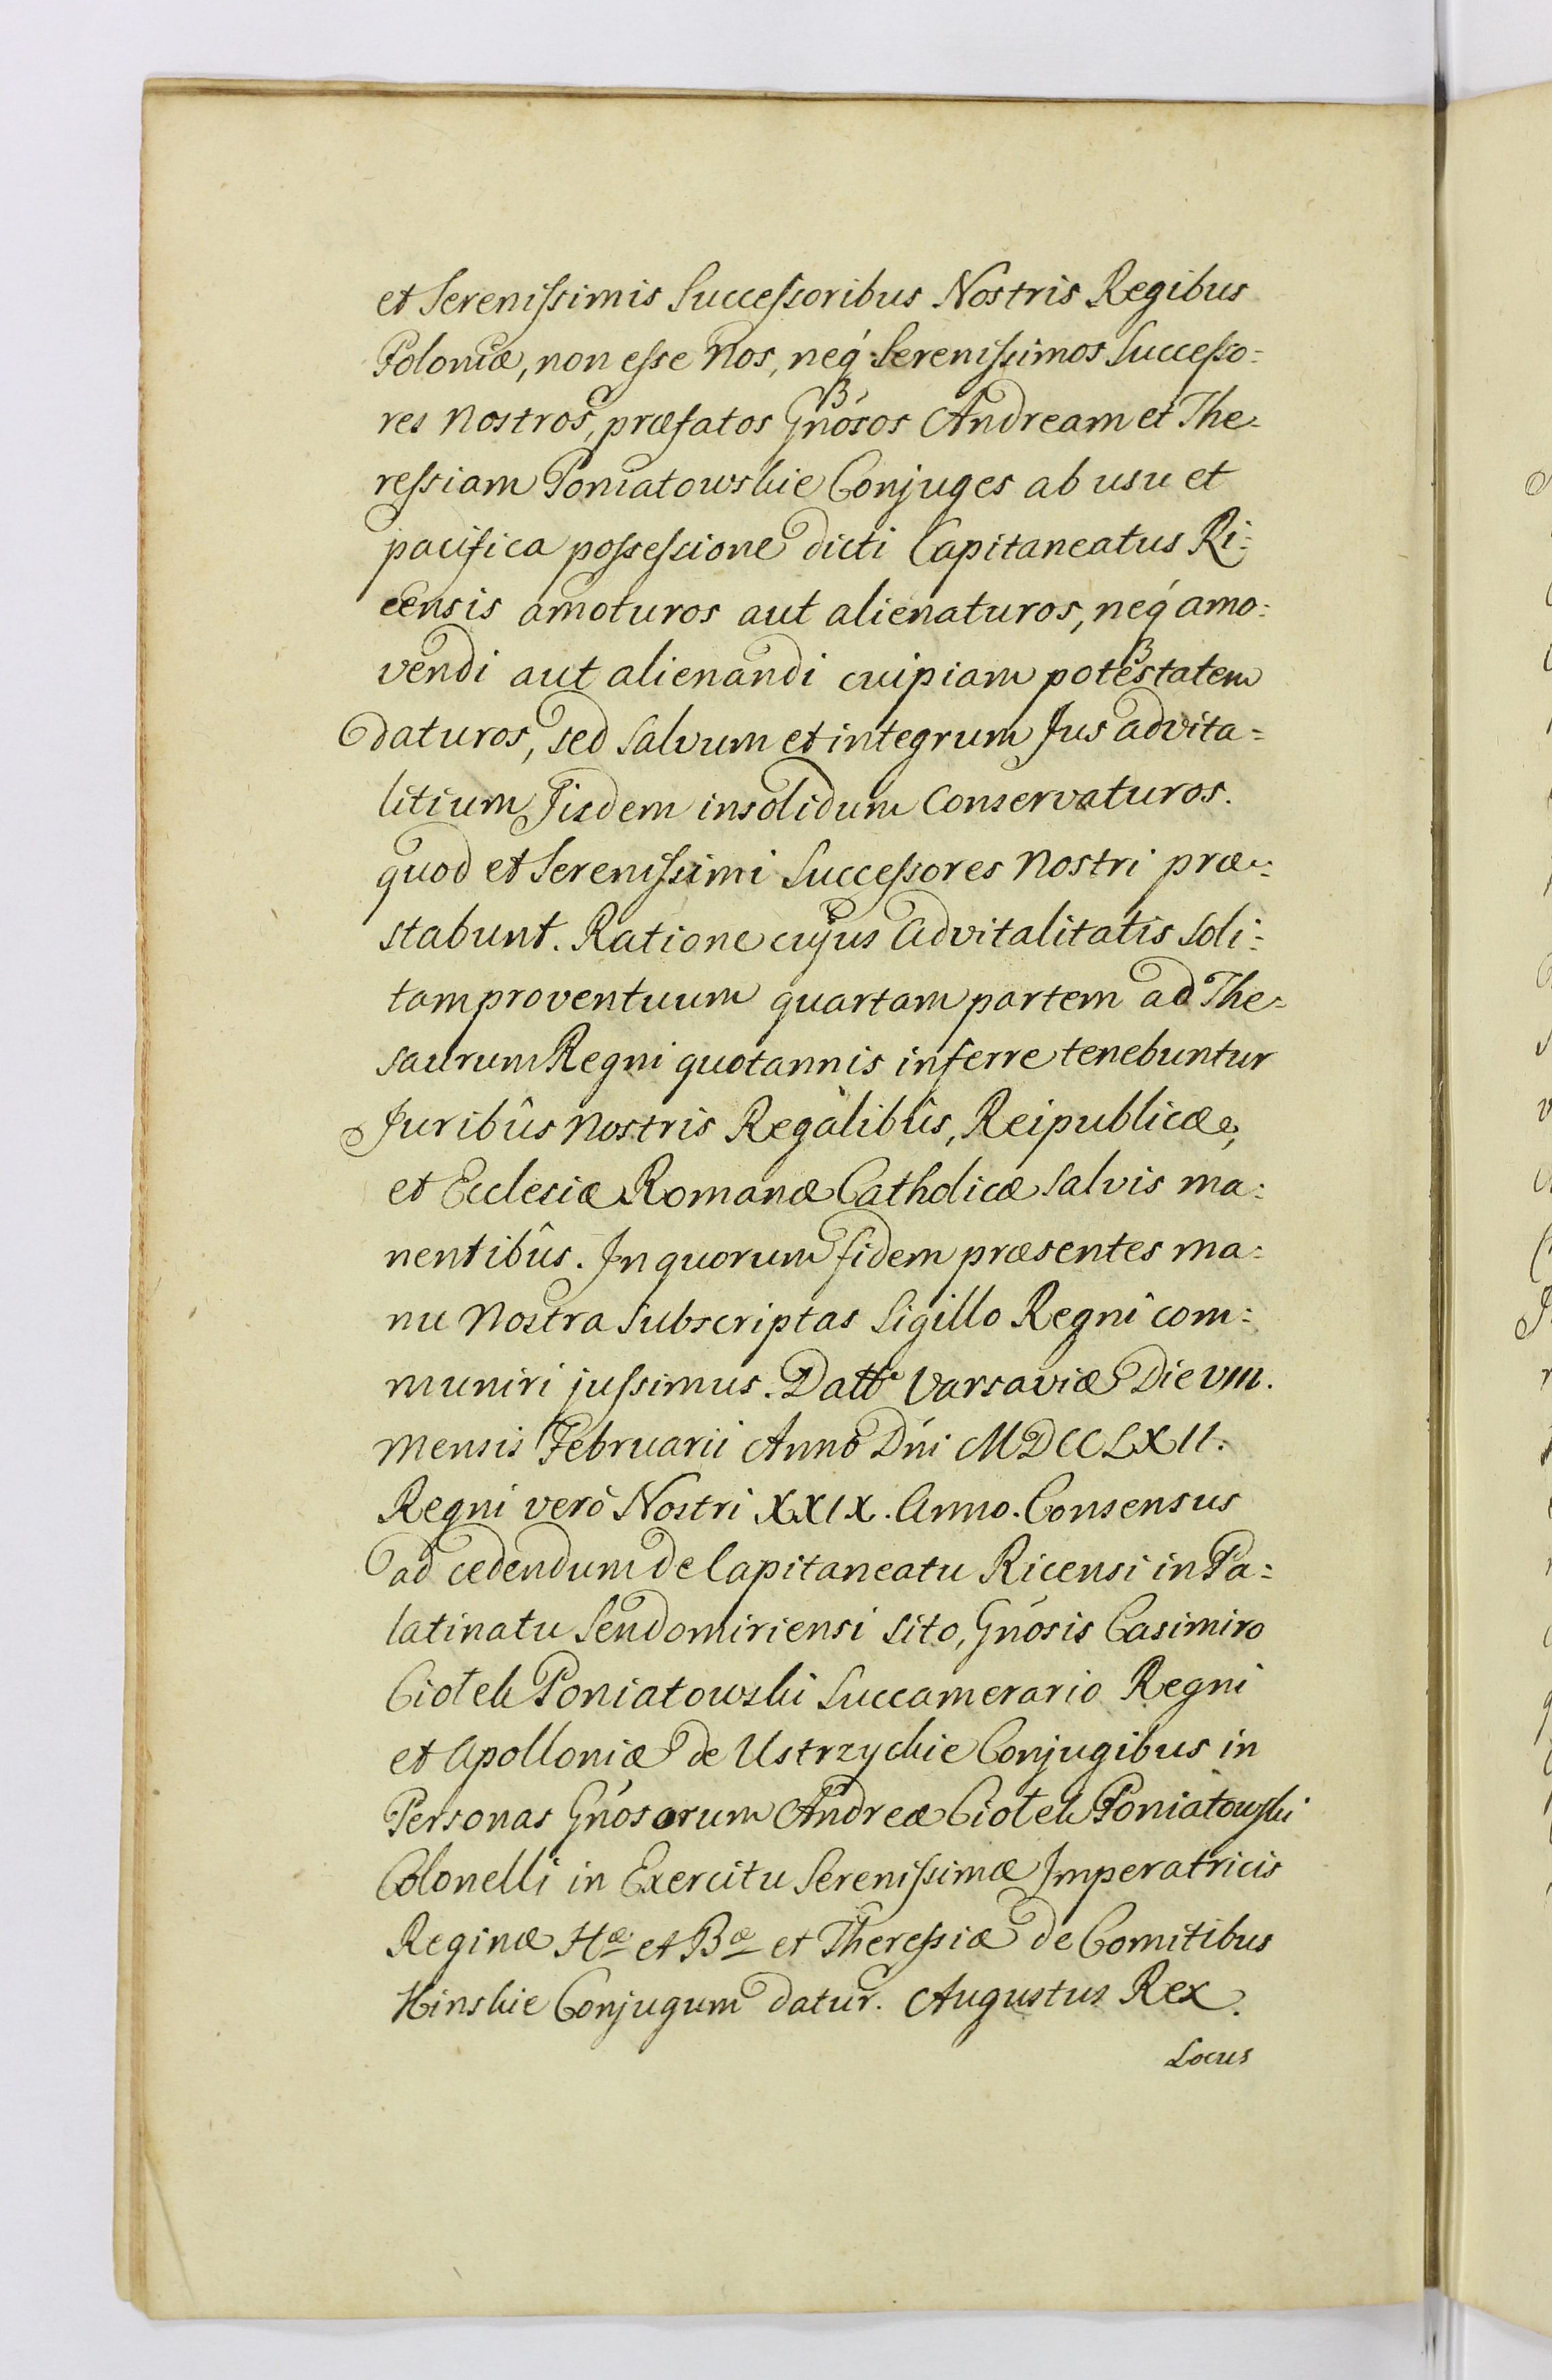 et Serenissimis Successoribus Nostris Regibus
Poloniæ, non esse Nos, neq́ Serenissimos Successo=
res Nostros, præfatos Gnósos Andream et The=
ressiam Poniatowskie Conjuges ab usu et
pacifica possessione dicti Capitaneatus Ri=
censis amoturos aut alienaturos, neq́ amo=
vendi aut alienandi cuipiam potestatem
daturos, sed salvum et integrum Jus advita=
litium Jisdem insolidum Conservaturos.
quod et Serenissimi Successores Nostri præ=
stabunt. Ratione cujus Advitalitatis soli=
tam proventuum quartam partem ad The=
saurum Regni quotannis inferre tenebuntur
Juribûs Nostris Regalibûs, Reipublicæ,
et Ecclesiæ Romanæ Catholicæ salvis ma=
nentibûs. In quorum fidem præsentes ma=
nu Nostra subscriptas Sigillo Regni com=
muniri jussimus. Datt Varsaviæ Die VIII.
Mensis Februarii Anno Dńi MDCCLXII.
Regni verò Nostri XXIX. Anno. Consensus
ad cedendum de Capitaneatu Ricensi in Pa=
latinatu Sendomiriensi sito, Gnósis Casimiro
Ciołek Poniatowski Succamerario Regni
et Apolloniæ de Ustrzyckie Conjugibus in
Personas Gnósorum Andreæ Ciołek Poniatowski
Colonelli in Exercitu Serenissimæ Imperatricis
Reginæ Hæ et Bæ et Theressiæ de Comitibus
Kinskie Conjugum datur. Augustus Rex.
Locus